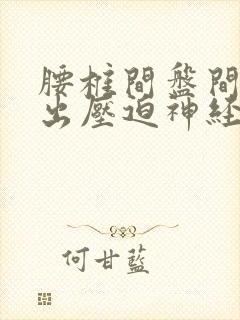 腰椎間盤間
出壓迫神経
何甘藍